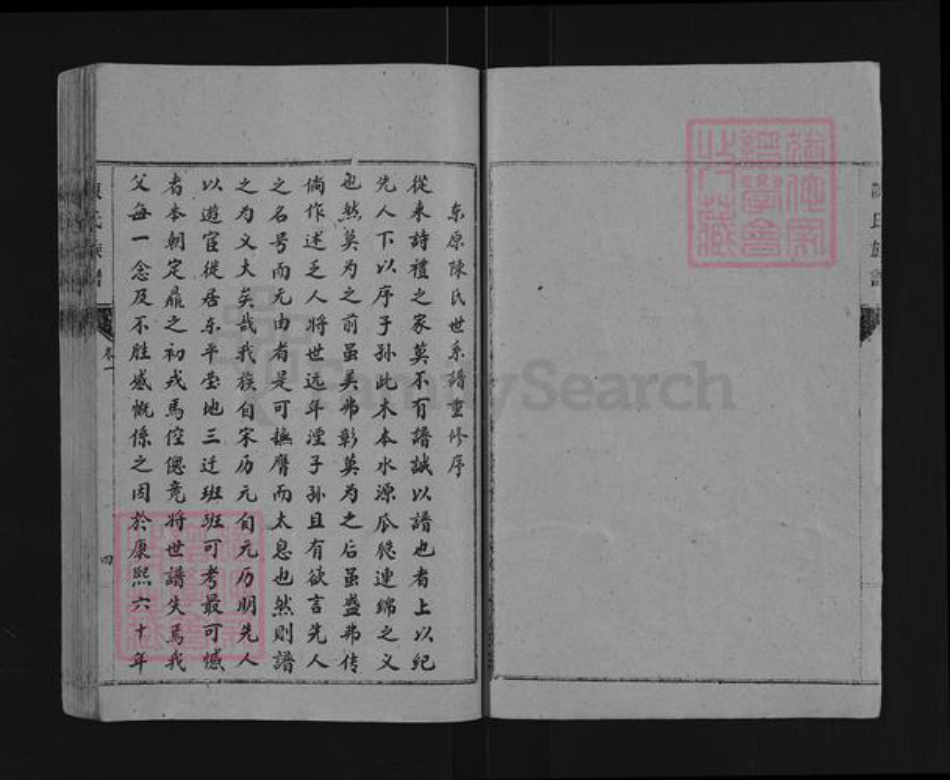 东原陳氏世系譜重修序
從来詩禮之家莫不有譜誠以譜也者上以纪
先人下以序子孙此木本水源瓜瓞連綿之义
也然莫为之前虽美弗彰莫为之后虽盛弗传
倘作述乏人将世远年湮子孙且有欲言先人
之名号而无由者是可撫膺而太息也然则譜
之为义大矣哉我族自宋历元自元历明先人
以遊宦徙居东平茔地三迁班班可考最可憾
者本朝定鼎之初戎馬倥偬竟将世譜失焉我
父每一念及不胜感慨係之因於康熙六十年
陳氏族譜
卷一
四
FamilySearch